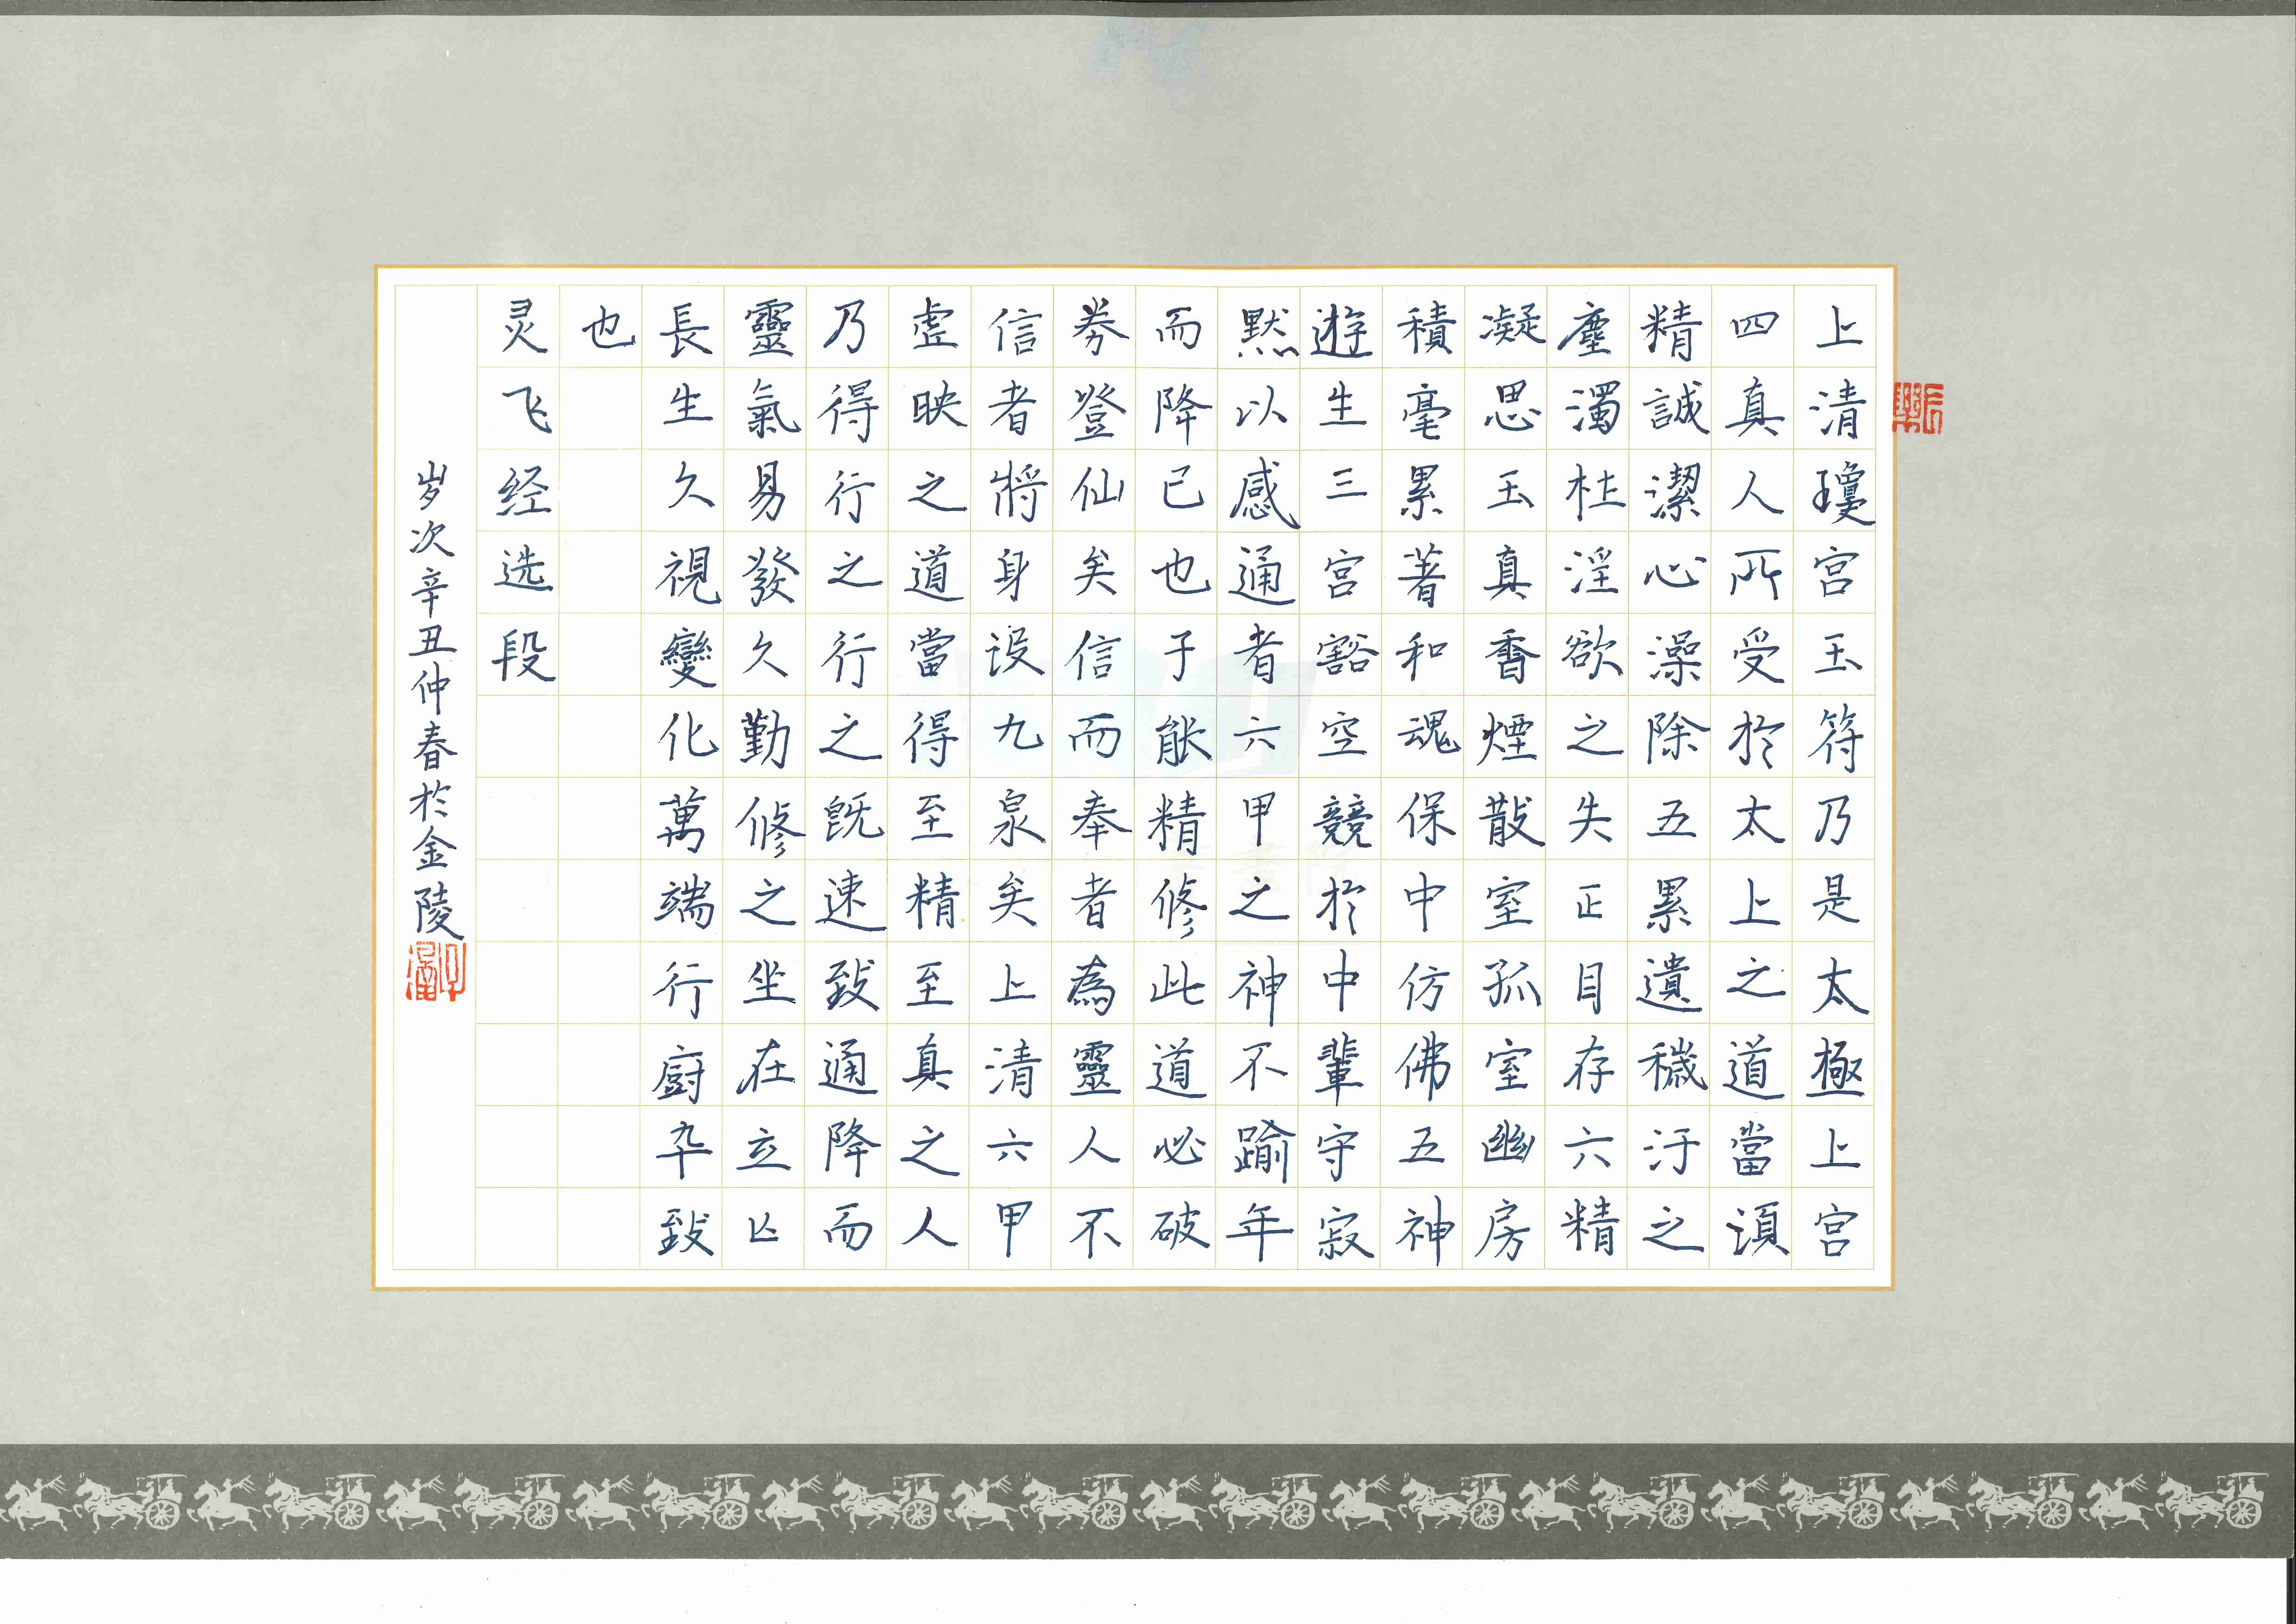 上清瓊宮玉符乃是太極上宮
四真人所受於太上之道當須
精誠潔心澡除五累遺穢汙之
塵濁杜淫欲之失正目存六精
凝思玉真香煙散室孤室幽房
積毫累著和魂保中仿佛五神
遊生三宮豁空競於中輩守寂
默以感通者六甲之神不踰年
而降已也于能精修此道必破
券登仙矣信而奉者為靈人不
信者將身没九泉矣上清六甲
虛映之道當得至精至真之人
乃得行之行之既速致通降而
靈氣易發久勤修之坐在立亡
長生久視變化萬端行廚卒致
也
灵飞经选段
岁次辛丑仲春於金陵